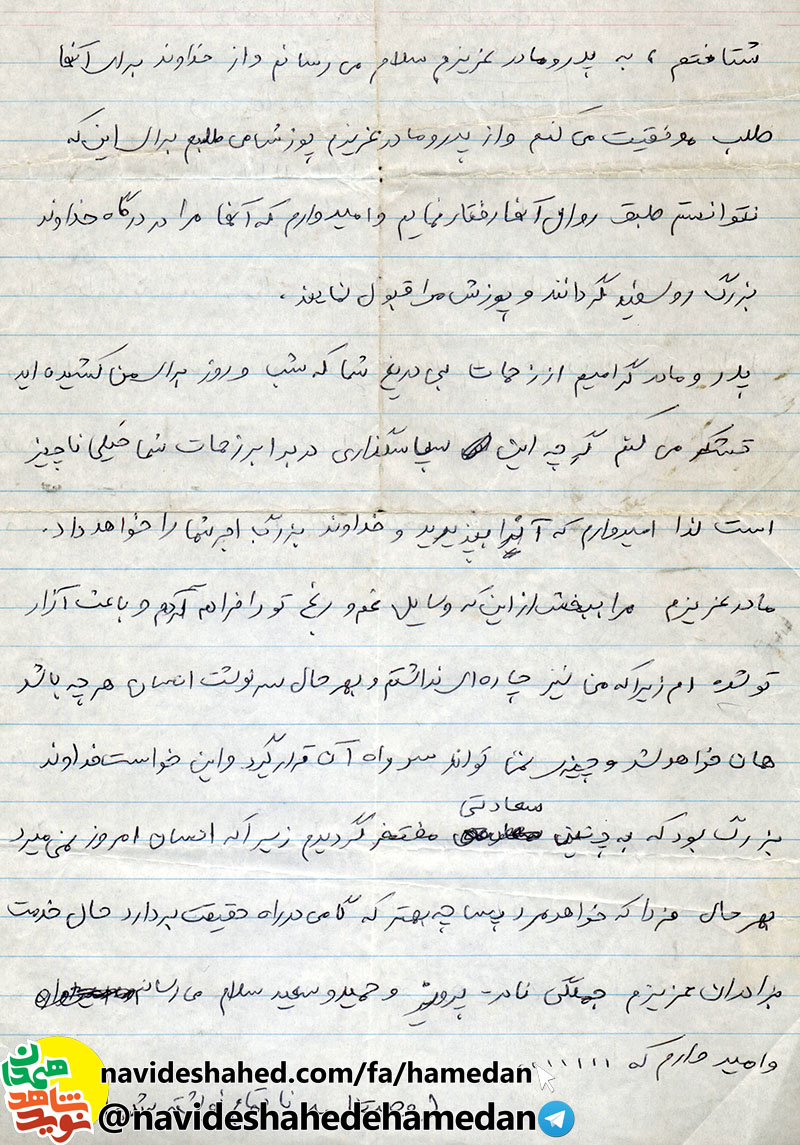 شتافتم، به پدر و مادر عزیزم سلام می رسانم و از خداوند برای آنها
طلب موفقیت می کنم و از پدر و مادر عزیزم پوزش می طلبم برای این که
نتوانستم طبق روال آنها رفتار نمایم و امیدوارم که آنها مرا در درگاه خداوند
بزرگ رو سفید گردانند و پوزش مرا قبول نمایند.
پدر و مادر گرامیم از زحمات بی دریغ شما که شب و روز برای من کشیده اید
تشکر می کنم گر چه این سپاسگذاری در برابر زحمات شما خیلی ناچیز
است لذا امیدوارم که آنرا بپذیرید و خداوند بزرگ اجر شما را خواهد داد.
مادر عزیزم مرا ببخش از این که وسایل غم و رنج تو را فراهم کردم و باعث آزار
تو شده ام زیرا که من نیز چاره ای نداشتم و بهر حال سرنوشت انسان هر چه باشد
همان خواهد شد و چیزی نمی تواند سر راه آن قرار گیرد و این خواست خداوند
بزرگ بود که به چنین سعادتی مفتخر گردیدم زیرا که انسان امروز نمی میرد
بهر حال فردا که خواهد مرد پس چه بهتر که گامی در راه حقیقت بردارد حال خدمت
برادران عزیزم جملگی نادر - پرویز و حمید و سعید سلام می رسانم
و امیدوارم که
navideshahed.com/fa/hamedan
@navideshahedehamedan
نوید شاهد همدان